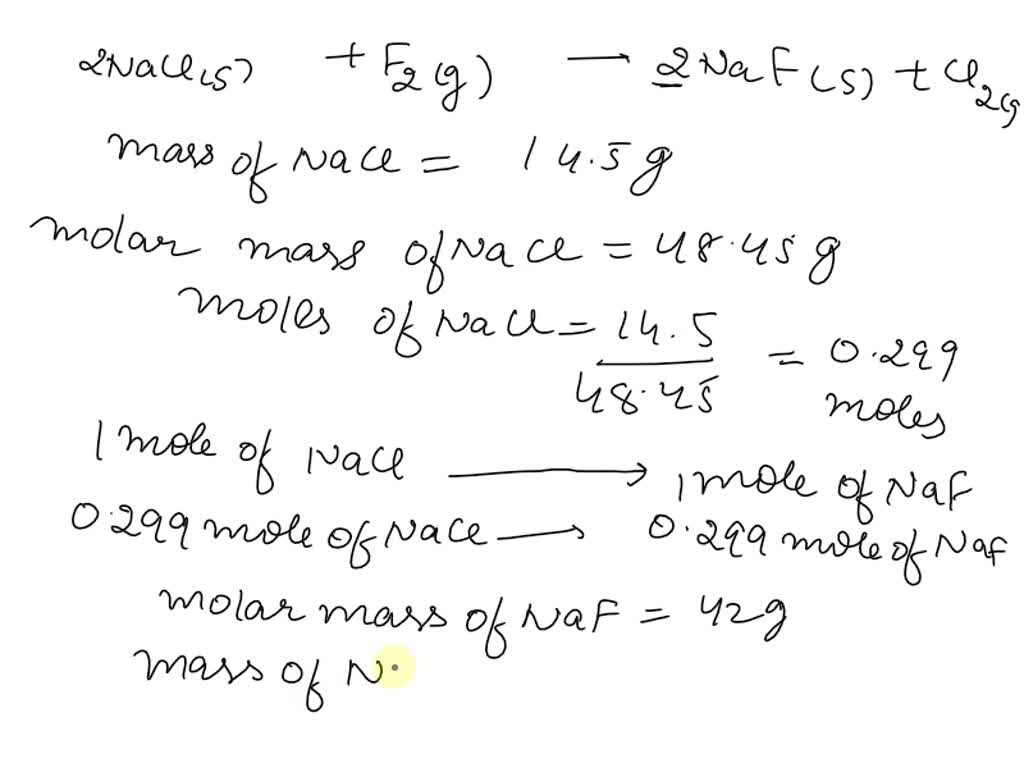 2NaCl(s) + F2(g) → 2NaF(s) + Cl2(g
mass of NaCl = 14.5g
molar mass of NaCl = 48.45g
moles of NaCl = 14.5 / 48.45 = 0.299 moles
1 mole of NaCl → 1 mole of NaF
0.299 mole of NaCl → 0.299 mole of NaF
molar mass of NaF = 42g
mass of N